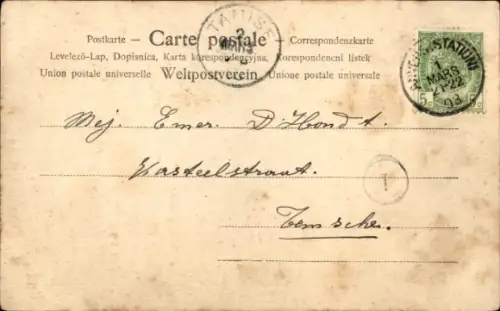 Postkarte — Carte postale — Correspondenzkarte
Levelező-Lap, Dopisnica, Karta korespondencyjna, Korespondenční lístek
Union postale universelle Weltpostverein Unione postale universale
(STATION)
1
MARS
03
5c
Mej. Emer. D'Hondt.
Kasteelstraat.
1
Temsche.